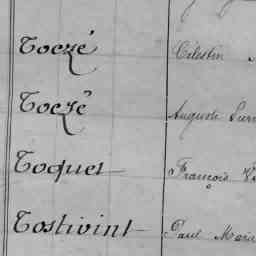 Toczé Célestin
Toczé Auguste
Toquet François
Tostivint Paul Marie